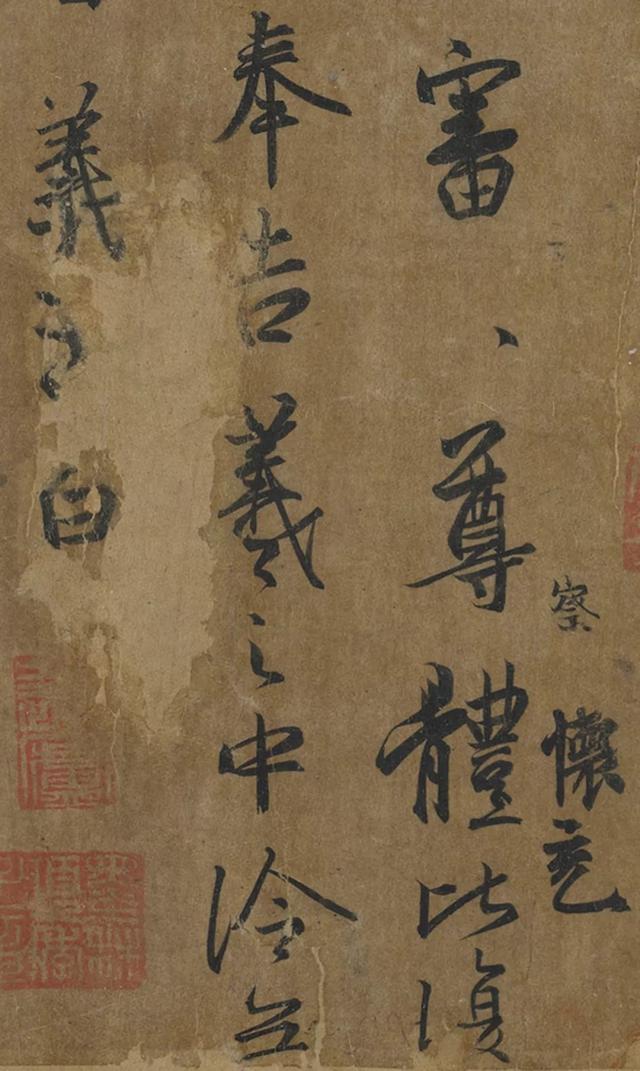 察 懷充
審、尊體比復
奉告羲之中冷無
羲之白